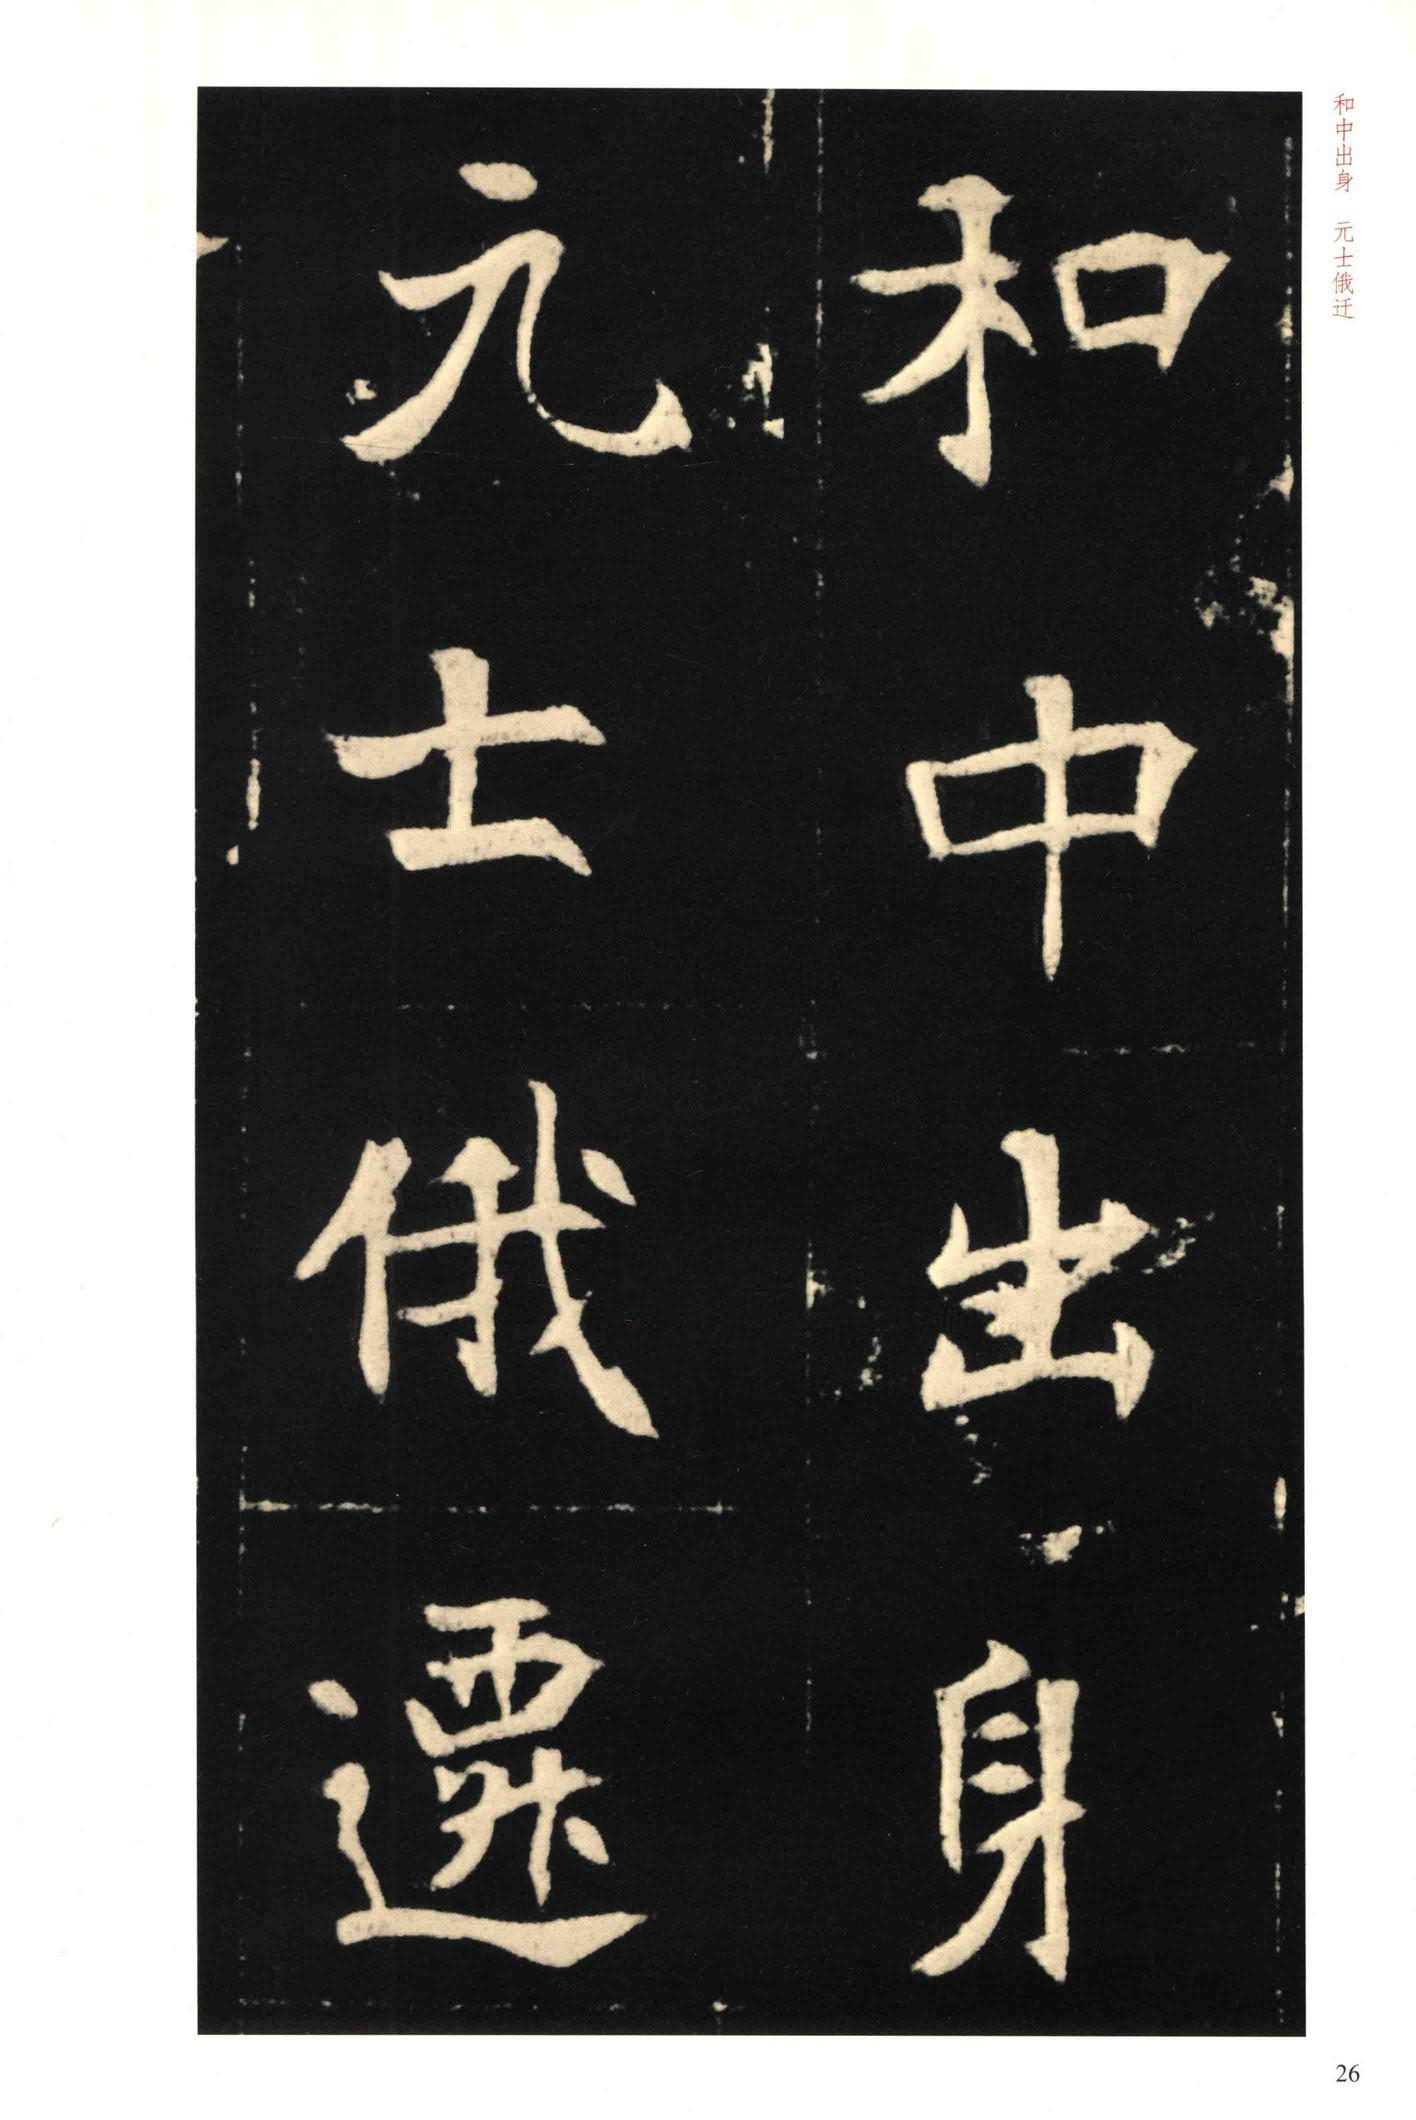 和中出身
元士俄遷
和中出身　元士俄迁
26